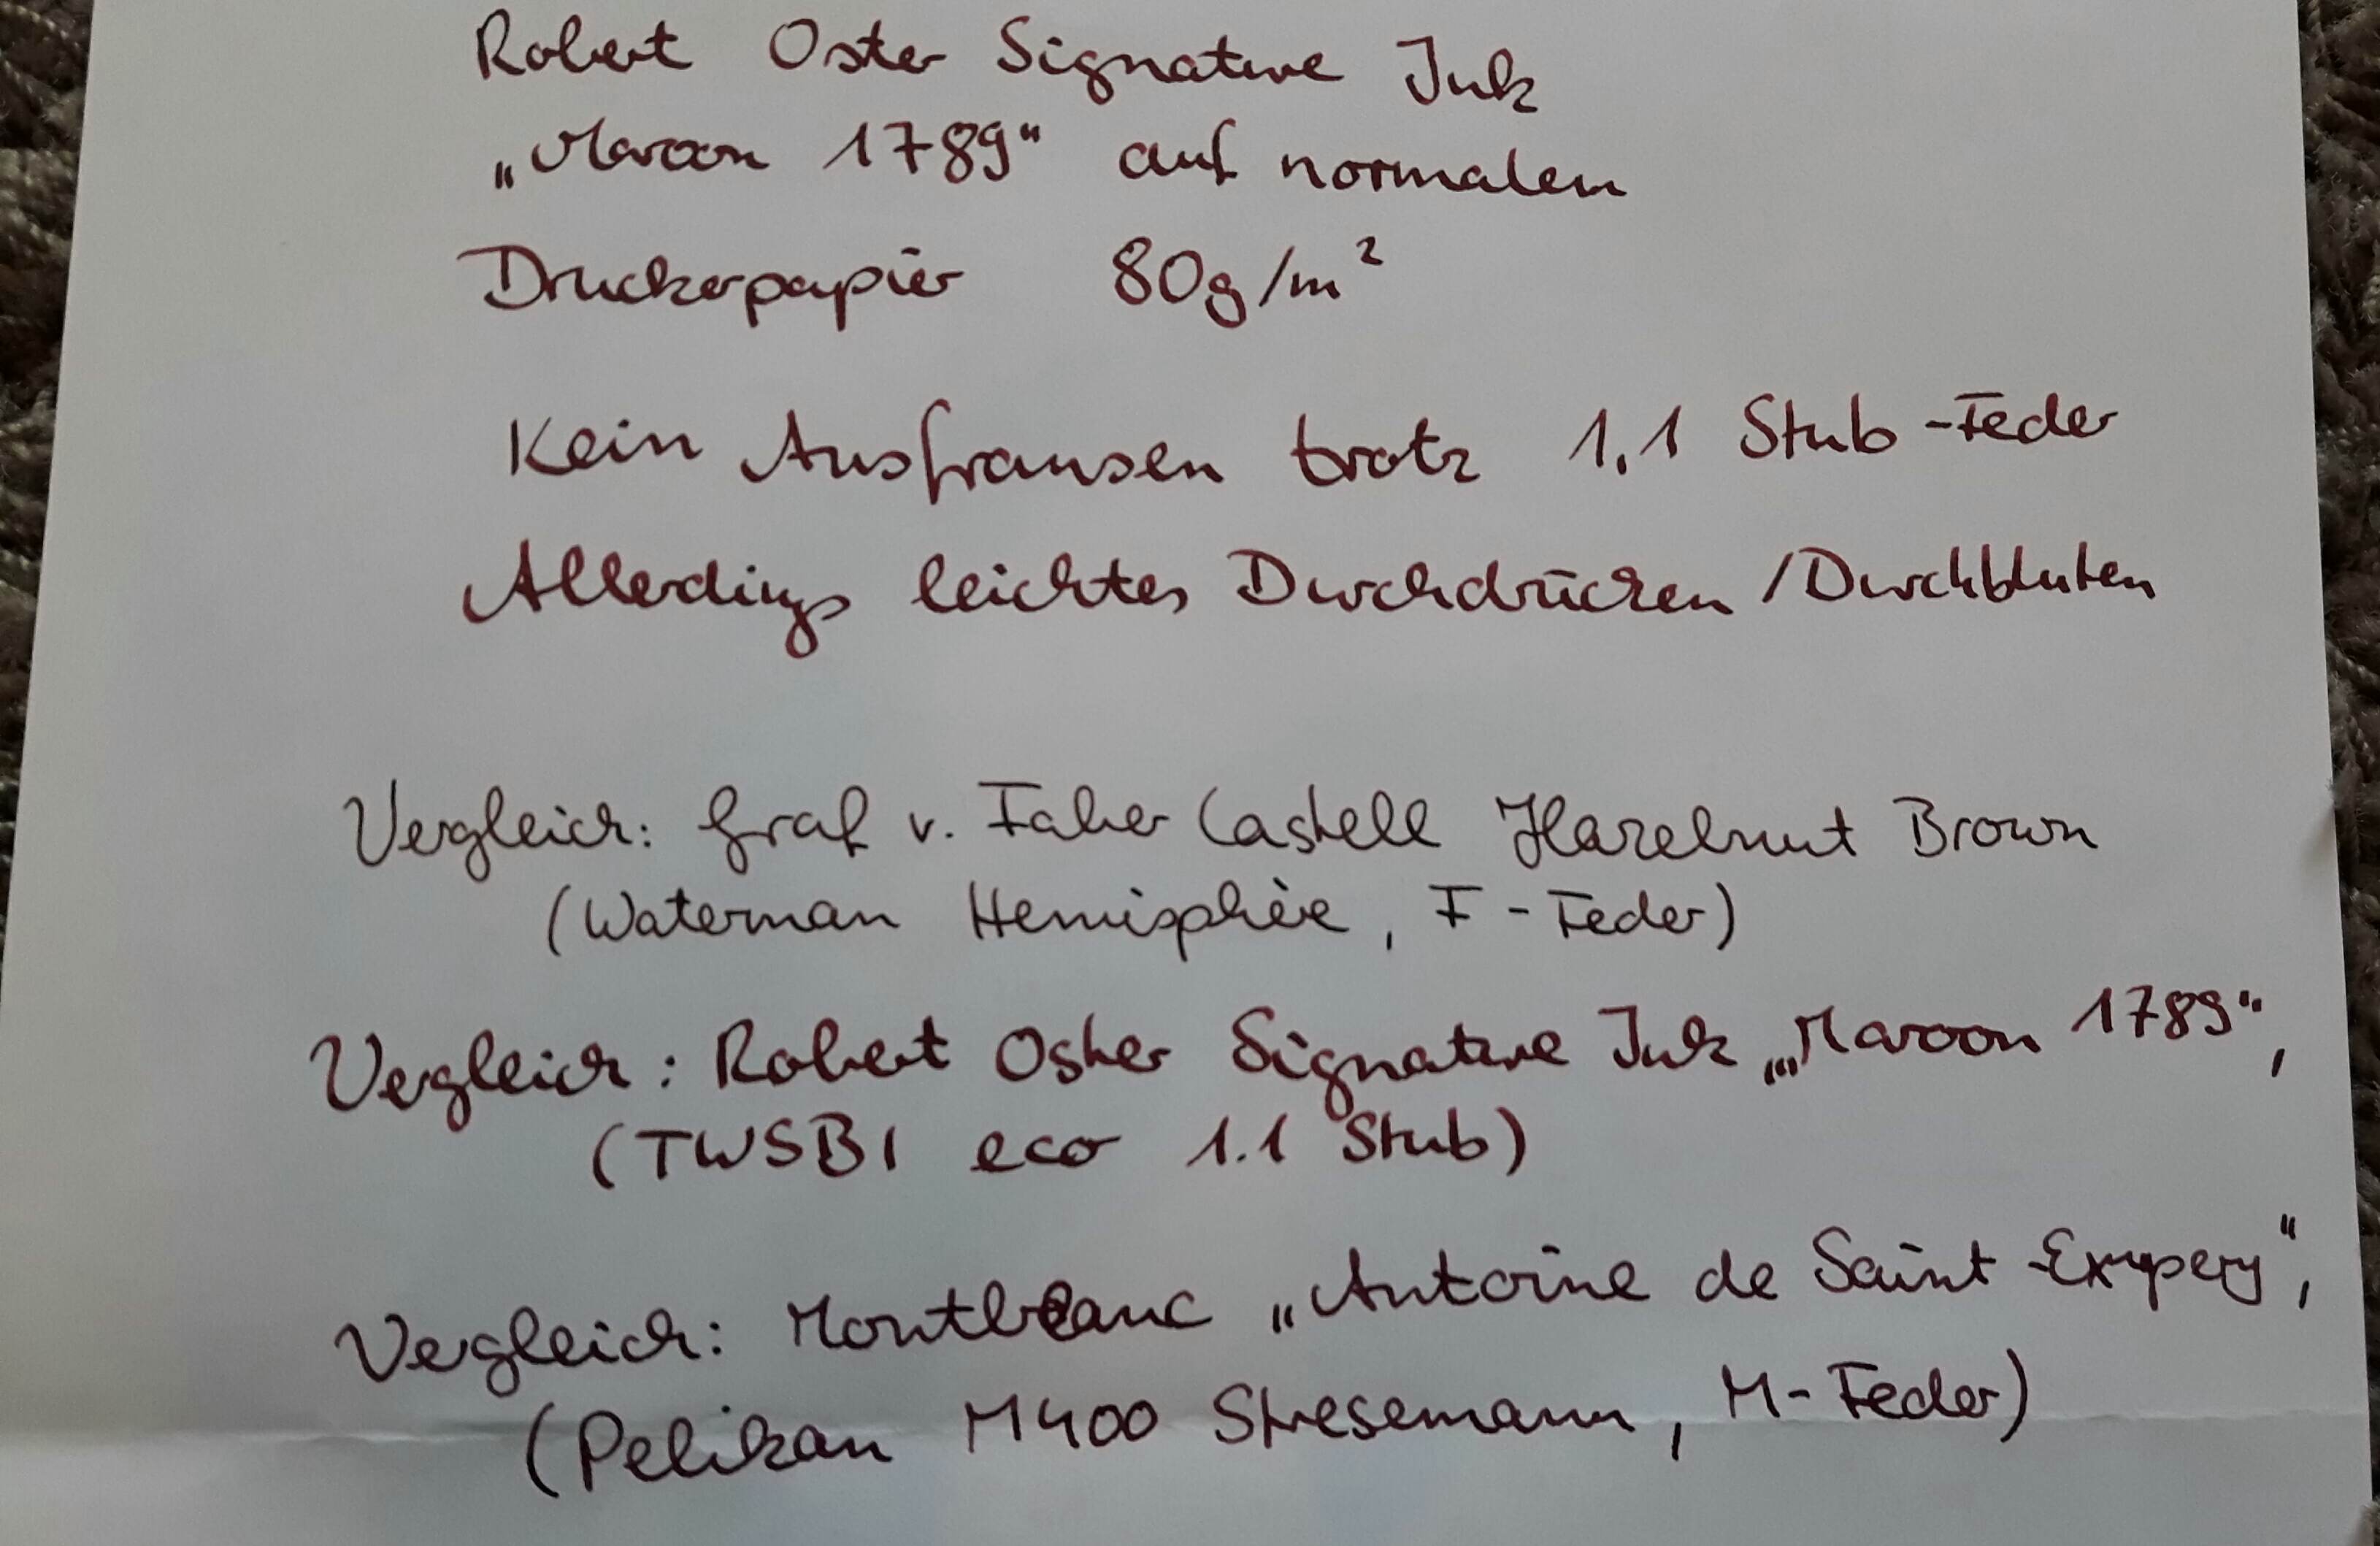 Robert Oster Signature Ink
„Maroon 1789“ auf normalem
Druckerpapier 80g/m²
Kein Ausfransen trotz 1,1 Stub-Feder
Allerdings leichtes Durchdrücken / Durchbluten
Vergleich: Graf v. Faber Castell Hazelnut Brown
(Waterman Hemisphère, F-Feder)
Vergleich: Robert Oster Signature Ink „Maroon 1789“,
(TWSBI eco 1.1 Stub)
Vergleich: Montblanc „Antoine de Saint-Exupery“,
(Pelikan M400 Stresemann, M-Feder)